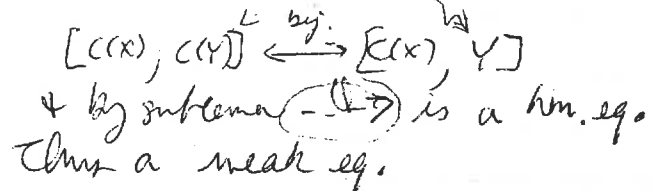 [C(X), C(Y)] bij. ⟷ [C(X), Y]
& by sublemma (--->) is a hm. eq.
Thus a weak eq.